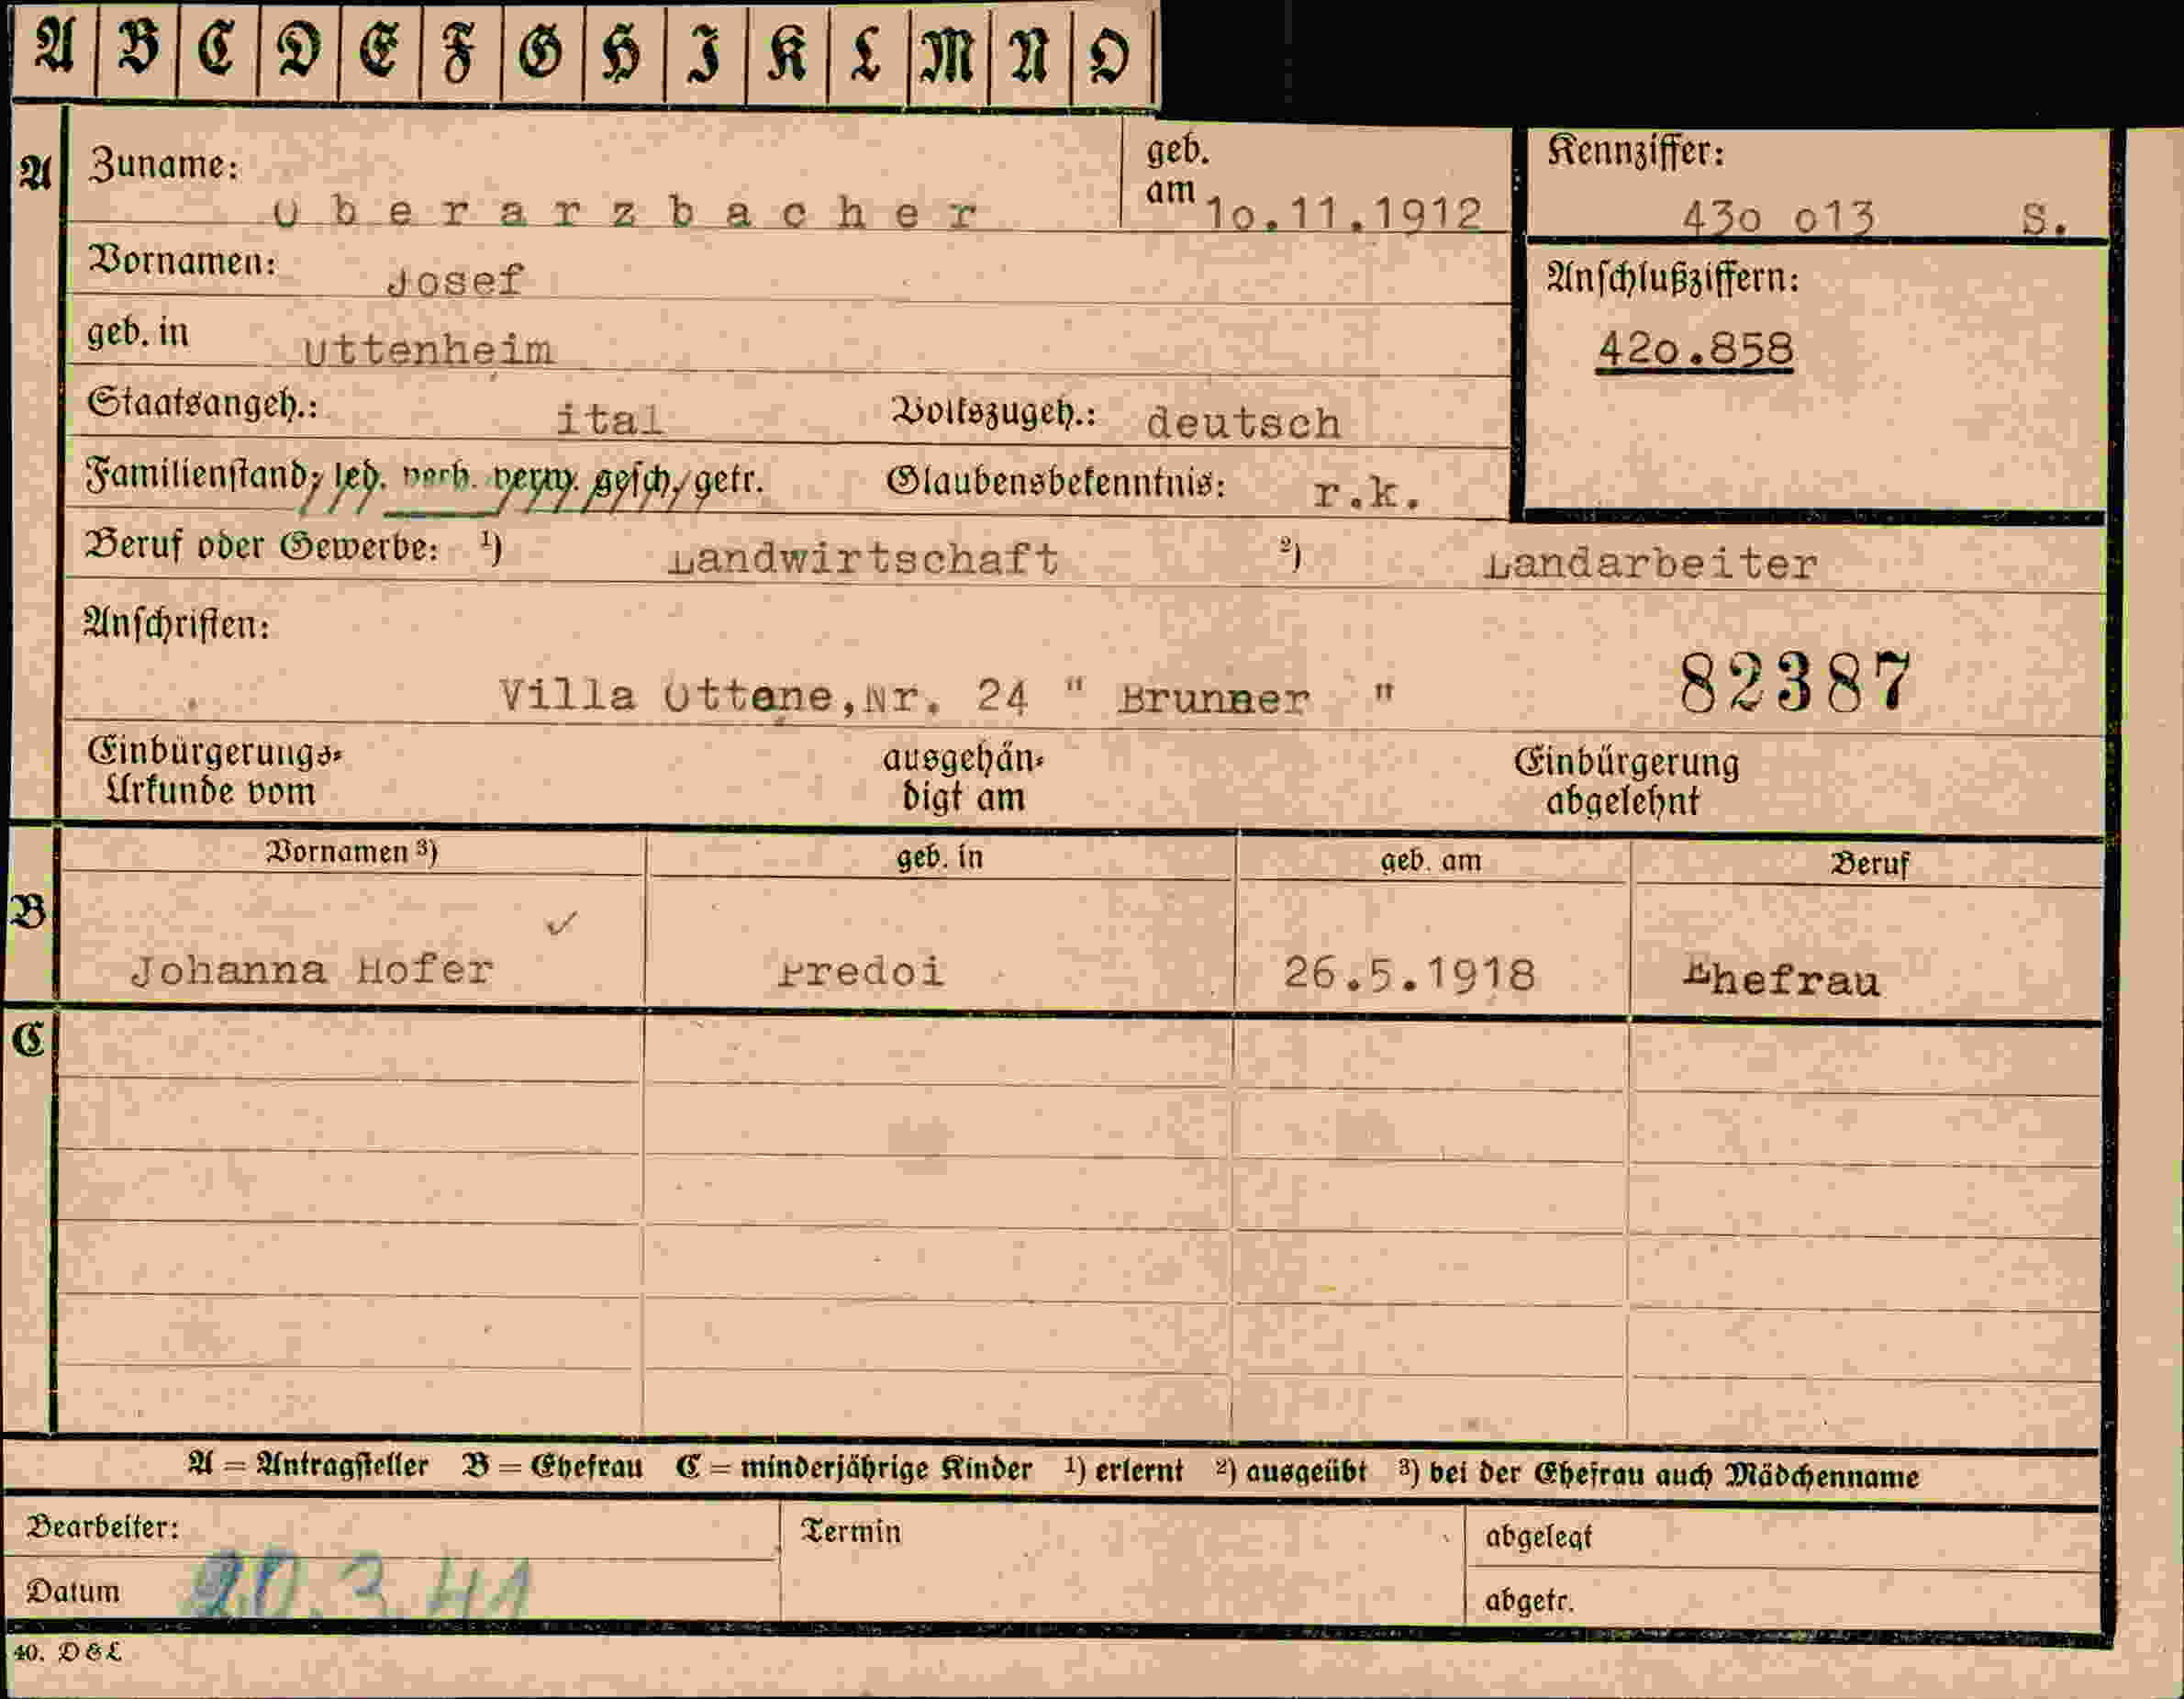 A B C D E F G H I K L M N O
A Zuname: Oberarzbacher geb. am 1o.11.1912 Kennziffer: 43o o13 S.
Vornamen: Josef Anschlußziffern:
geb. in Uttenheim 42o.858
Staatsangeh.: ital Volkszugeh.: deutsch
Familienstand: led. verh. verw. gesch. getr. Glaubensbekenntnis: r.k.
Beruf oder Gewerbe: 1) Landwirtschaft 2) Landarbeiter
Anschriften:
Villa Ottone, Nr. 24 " Brunner " 82387
Einbürgerungs-Urkunde vom ausgehändigt am Einbürgerung abgelehnt
B Vornamen 3) geb. in geb. am Beruf
Johanna Hofer Predoi 26.5.1918 Ehefrau
C
A = Antragsteller B = Ehefrau C = minderjährige Kinder 1) erlernt 2) ausgeübt 3) bei der Ehefrau auch Mädchenname
Bearbeiter: Termin abgelegt
Datum 20.3.41 abgetr.
40. D&L